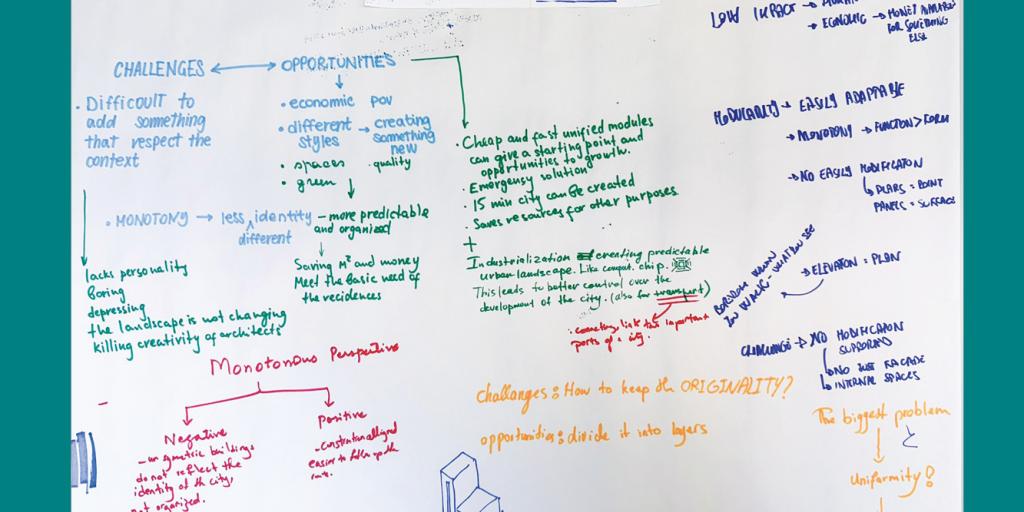 CHALLENGES
OPPORTUNITIES
• Difficult to
add something
that respect the
context
• economic pov
• different → creating
styles something
new
• spaces • quality
• green
• MONOTONY → less identity
different
– more predictable
and organized
lacks personality
Boring
depressing
the landscape is not changing
killing creativity of architects
Saving M² and money
Meet the Basic need of
the recidences
• Cheap and fast unified modules
can give a starting point and
opportunities to growth.
• Emergensy solution
• 15 min city can be created
• Saves resources for other purposes
+
Industrielization creating predictable
urban landscape. Like comput. chip.
This leads to better control over the
development of the city. (also for transport)
important
parts of a city.
Monotonous Perspective
Negative
buildings
do not reflect the
identity of the city,
not organized.
Positive
easier to
challanges: How to keep the ORIGINALITY?
opportunities: divide it into layers
LOW IMPACT →
→ ECONOMIC → MONEY
FOR SOMETHING
ELSE
MODULARITY → EASILY ADAPTABLE
→ MONOTONY → FUNCTION > FORM
→ NO EASILY MODIFICATON
PANELS = SURFACE
→ ELEVATION = PLAN
BOREDOM WHEN
CHALLENGE → NO MODIFICATON
SUPPORTED
→ NO JUST FACADE
→ INTERNAL SPACES
The biggest problem
Uniformity!